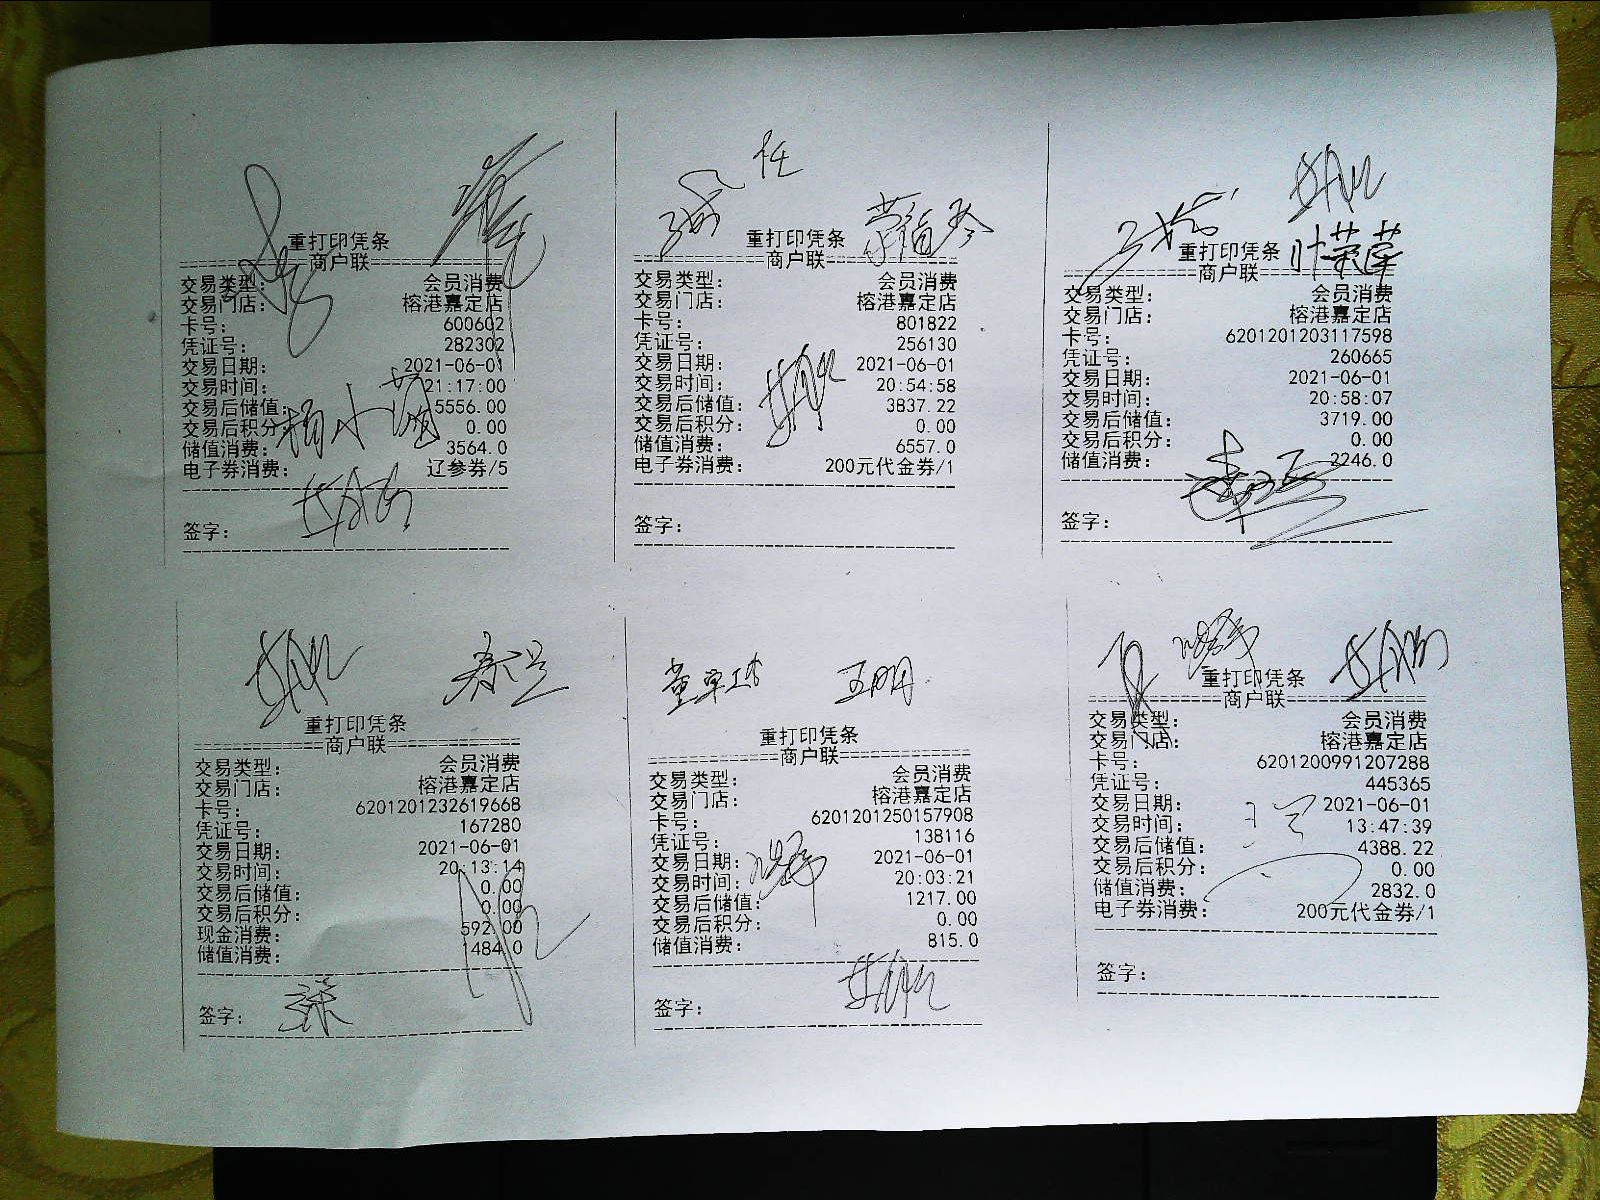 重打印凭条
商户联
交易类型: 会员消费
交易门店: 榕港嘉定店
卡号: 600602
凭证号: 282302
交易日期: 2021-06-01
交易时间: 21:17:00
交易后储值: 5556.00
交易后积分: 0.00
储值消费: 3564.0
电子券消费: 辽参券/5
签字:
任
重打印凭条
商户联
交易类型: 会员消费
交易门店: 榕港嘉定店
卡号: 801822
凭证号: 256130
交易日期: 2021-06-01
交易时间: 20:54:58
交易后储值: 3837.22
交易后积分: 0.00
储值消费: 6557.0
电子券消费: 200元代金券/1
签字:
重打印凭条
商户联
交易类型: 会员消费
交易门店: 榕港嘉定店
卡号: 6201201203117598
凭证号: 260665
交易日期: 2021-06-01
交易时间: 20:58:07
交易后储值: 3719.00
交易后积分: 0.00
储值消费: 2246.0
签字:
重打印凭条
商户联
交易类型: 会员消费
交易门店: 榕港嘉定店
卡号: 6201201232619668
凭证号: 167280
交易日期: 2021-06-01
交易时间: 20:13:14
交易后储值: 0.00
交易后积分: 0.00
现金消费: 592.00
储值消费: 1484.0
签字: 张
王明
重打印凭条
商户联
交易类型: 会员消费
交易门店: 榕港嘉定店
卡号: 6201201250157908
凭证号: 138116
交易日期: 2021-06-01
交易时间: 20:03:21
交易后储值: 1217.00
交易后积分: 0.00
储值消费: 815.0
签字:
重打印凭条
商户联
交易类型: 会员消费
交易门店: 榕港嘉定店
卡号: 6201200991207288
凭证号: 445365
交易日期: 2021-06-01
交易时间: 13:47:39
交易后储值: 4388.22
交易后积分: 0.00
储值消费: 2832.0
电子券消费: 200元代金券/1
签字: